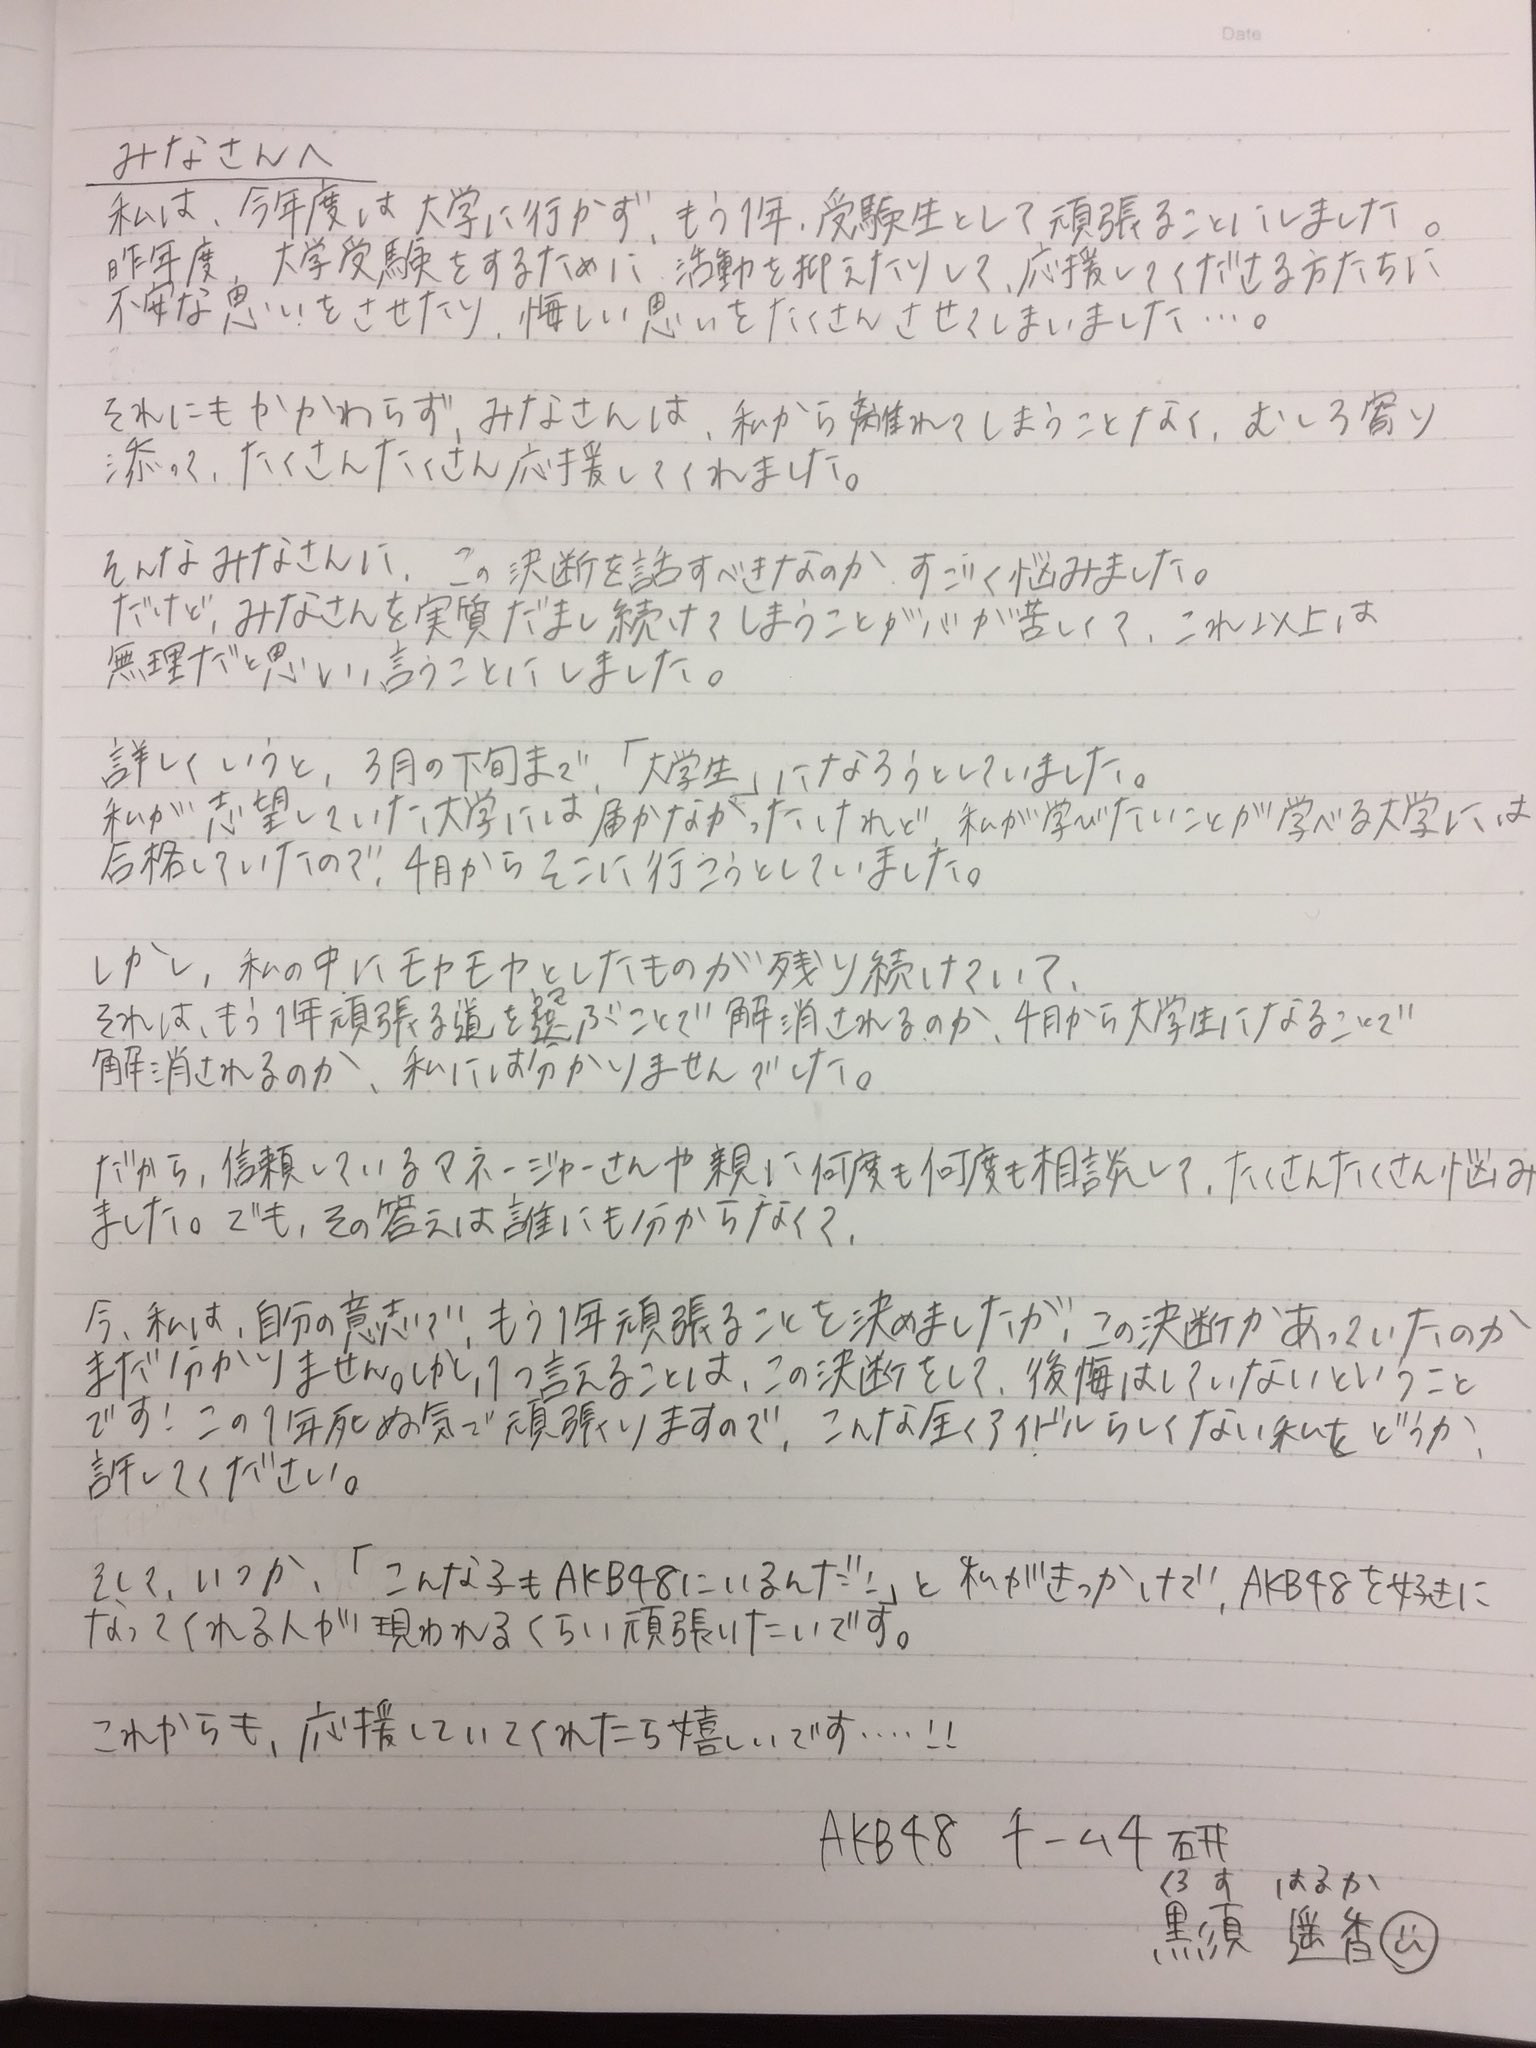 Date
みなさんへ
私は、今年度は大学に行かず、もう1年、受験生として頑張ることにしました。
昨年度、大学受験をするために活動を抑えたりして、応援してくださる方たちに
不安な思いをさせたり、悔しい思いをたくさんさせてしまいました…。
それにもかかわらず、みなさんは、私から離れてしまうことなく、むしろ寄り
添って、たくさんたくさん応援してくれました。
そんなみなさんに、この決断を話すべきなのか、すごく悩みました。
だけど、みなさんを実質だまし続けてしまうことが心が苦しくて、これ以上は
無理だと思い、言うことにしました。
詳しくいうと、3月の下旬まで、「大学生」になろうとしていました。
私が志望していた大学には届かなかったけれど、私が学びたいことが学べる大学には
合格していたので、4月からそこに行こうとしていました。
しかし、私の中にモヤモヤとしたものが残り続けていて、
それは、もう1年頑張る道を選ぶことで解消されるのか、4月から大学生になることで
解消されるのか、私には分かりませんでした。
だから、信頼しているマネージャーさんや親に何度も何度も相談して、たくさんたくさん悩み
ました。でも、その答えは誰にも分からなくて、
今、私は、自分の意志で、もう1年頑張ることを決めましたが、この決断があっていたのか
まだ分かりません。しかし、1つ言えることは、この決断をして、後悔はしていないということ
です！この1年死ぬ気で頑張りますので、こんな全くアイドルらしくない私をどうか、
許してください。
そして、いつか、「こんな子もAKB48にいるんだ！」と私がきっかけで、AKB48を好きに
なってくれる人が現われるくらい頑張りたいです。
これからも、応援していてくれたら嬉しいです……!!
AKB48 チーム4 研
くろす はるか
黒須 遥香